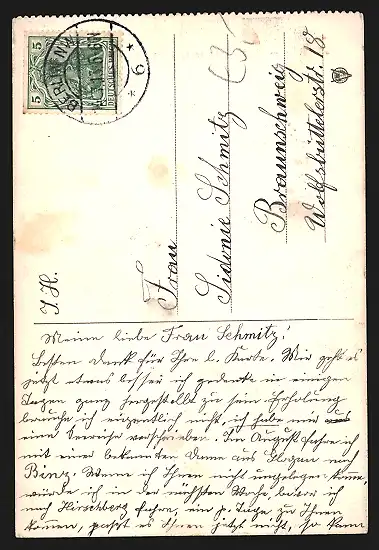 BERLIN N.W.
* 6 *
5
5
DEUTSCHES REICH
I. H.
Frau
Sidonie Schmitz
Braunschweig
Wolfsbüttelerstr. 18.
Meine liebe Frau Schmitz!
Besten Dank für Ihre l. Karte. Mir geht es
jetzt etwas besser ich gedenke in einigen
Tagen ganz hergestellt zu sein Erholung
brauche ich eigentlich nicht, ich habe mir
eine verschrieben. Im August fahre ich
mit einer bekannten Dame aus Glogau nach
Binz. Wenn ich Ihnen nicht ungelegen komme,
würde ich in der nächsten Woche, bevor ich
nach Hirschberg fahre, ein p. Tage zu Ihnen
kommen, passt es Ihnen jetzt nicht, so kann